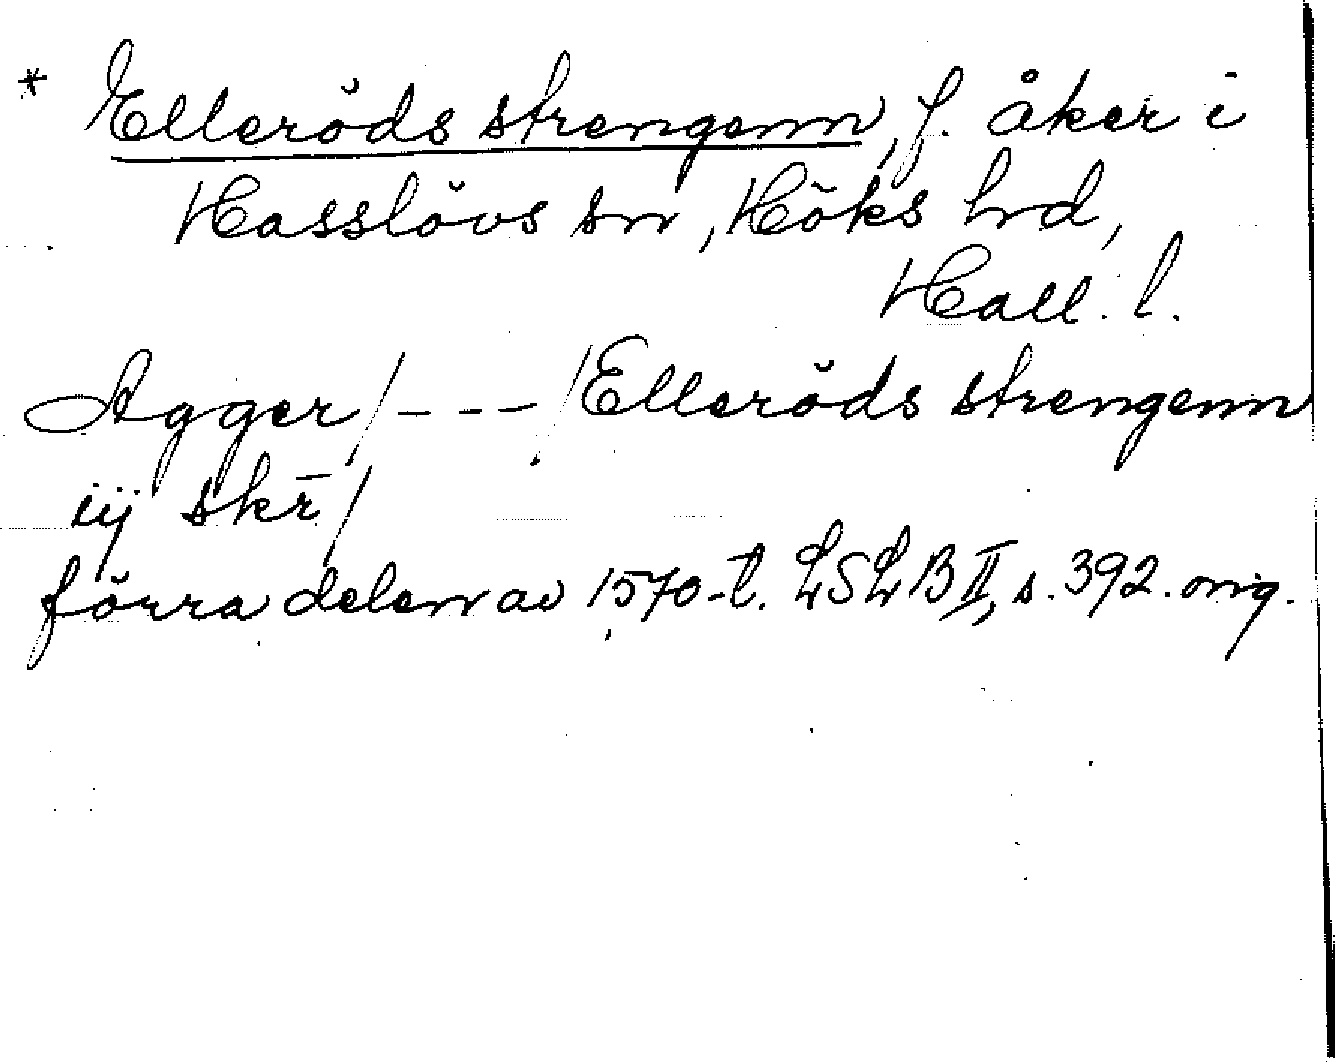 * Elleröds strengenn, f. åker i
Hasslövs sn, Höks hd,
Hall. l.
Agger/---/Elleröds strengenn
iij skr̄/
förra delen av 1570-t. LSLB II, s. 392. orig.